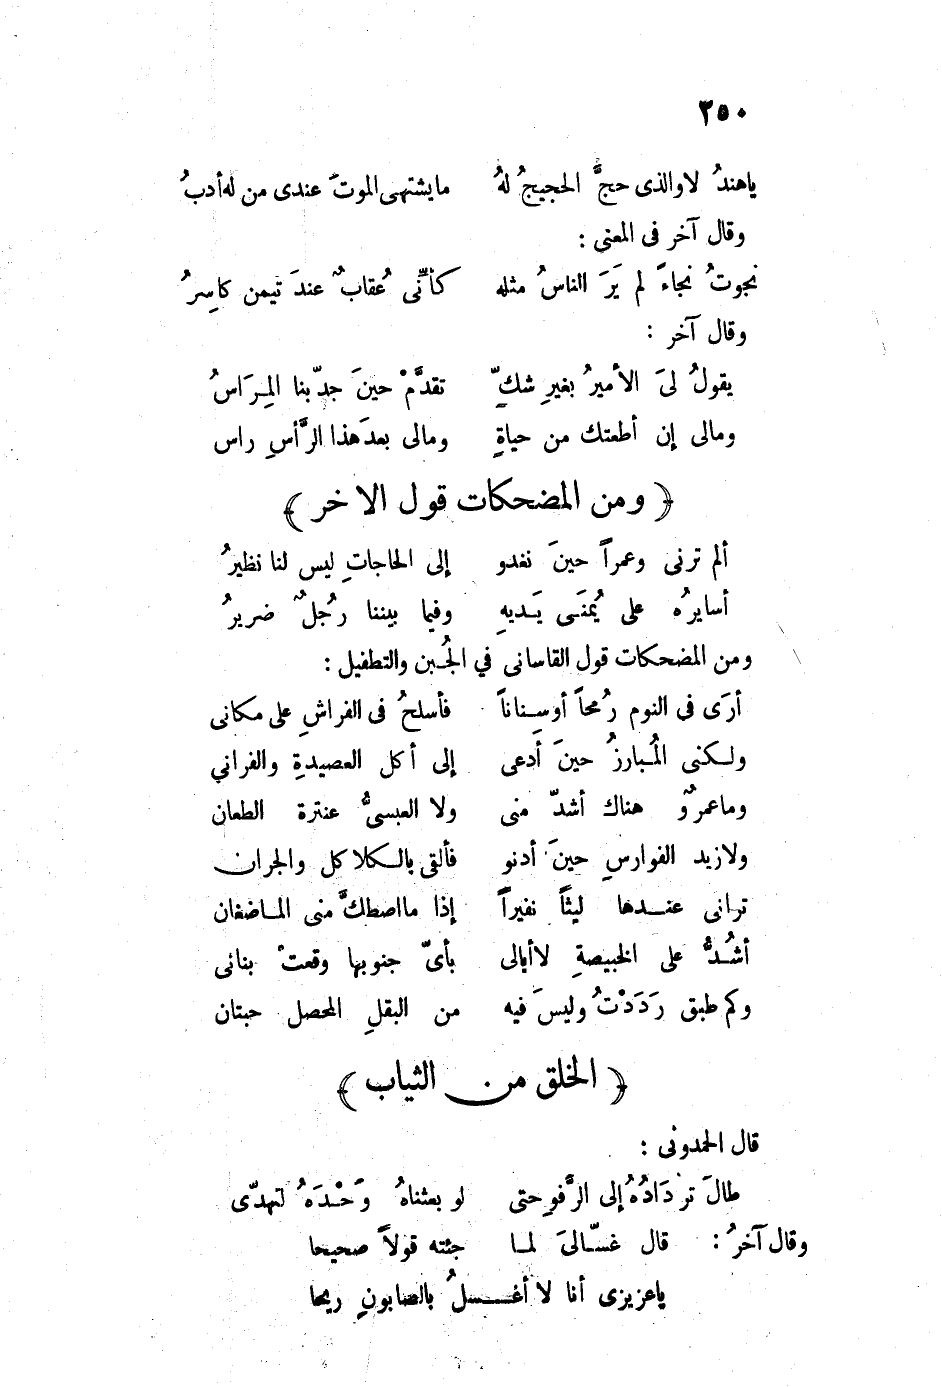 ٣٥٠
ياهندُ لا والذى حجَّ الحجيجُ لهُ ما يشتهى الموتَ عندى من له أدبُ
وقال آخر فى المعنى :
نجوتُ نجاءً لم يَرَ الناسُ مثله كأنِّى عُقابٌ عندَ تيمن كاسِرُ
وقال آخر :
يقولُ لىَ الأميرُ بغيرِ شكٍّ تقدَّمْ حينَ جدّ بنا المِرَاسُ
ومالى إن أطعتك من حياةٍ ومالى بعدَ هذا الرَّأسِ راس
﴿ ومن المضحكات قول الاخر ﴾
ألم ترنى وعمراً حينَ نغدو إلى الحاجاتِ ليس لنا نظيرُ
أسايرُه على يُمنَى يَديهِ وفيما بيننا رُجلٌ ضريرُ
ومن المضحكات قول القاسانى في الجُبن والتطفيل :
أرَى فى النوم رُمحاً أوسِناناً فأسلحُ فى الفراشِ على مكانى
ولكنى المُبارزُ حينَ أدعى إلى أكل العصيدةِ والفراني
وماعمرٌو هناك أشدّ منى ولا العبسىُّ عنترة الطعان
ولازيد الفوارسِ حينَ أدنو فألقى بالكلاكل والجران
ترانى عندها ليثاً نفيراً إذا مااصطكَّ منى الماضغان
أشُدُّ على الخبيصةِ لاأبالى بأىّ جنوبها وقعتْ بنانى
وكم طبق رَدَدْتُ وليسَ فيه من البقلِ المحصل حبتان
﴿ الخلق من الثياب ﴾
قال الحمدونى :
طالَ تردَادُهُ إلى الرَّفوِحتى لو بعثناهُ وَحْدَهُ لتهدّى
وقال آخرُ : قال غسّالىَ لما جئته قولاً صحيحا
ياعزيزى أنا لا أغسلُ بالصابونِ ريحا